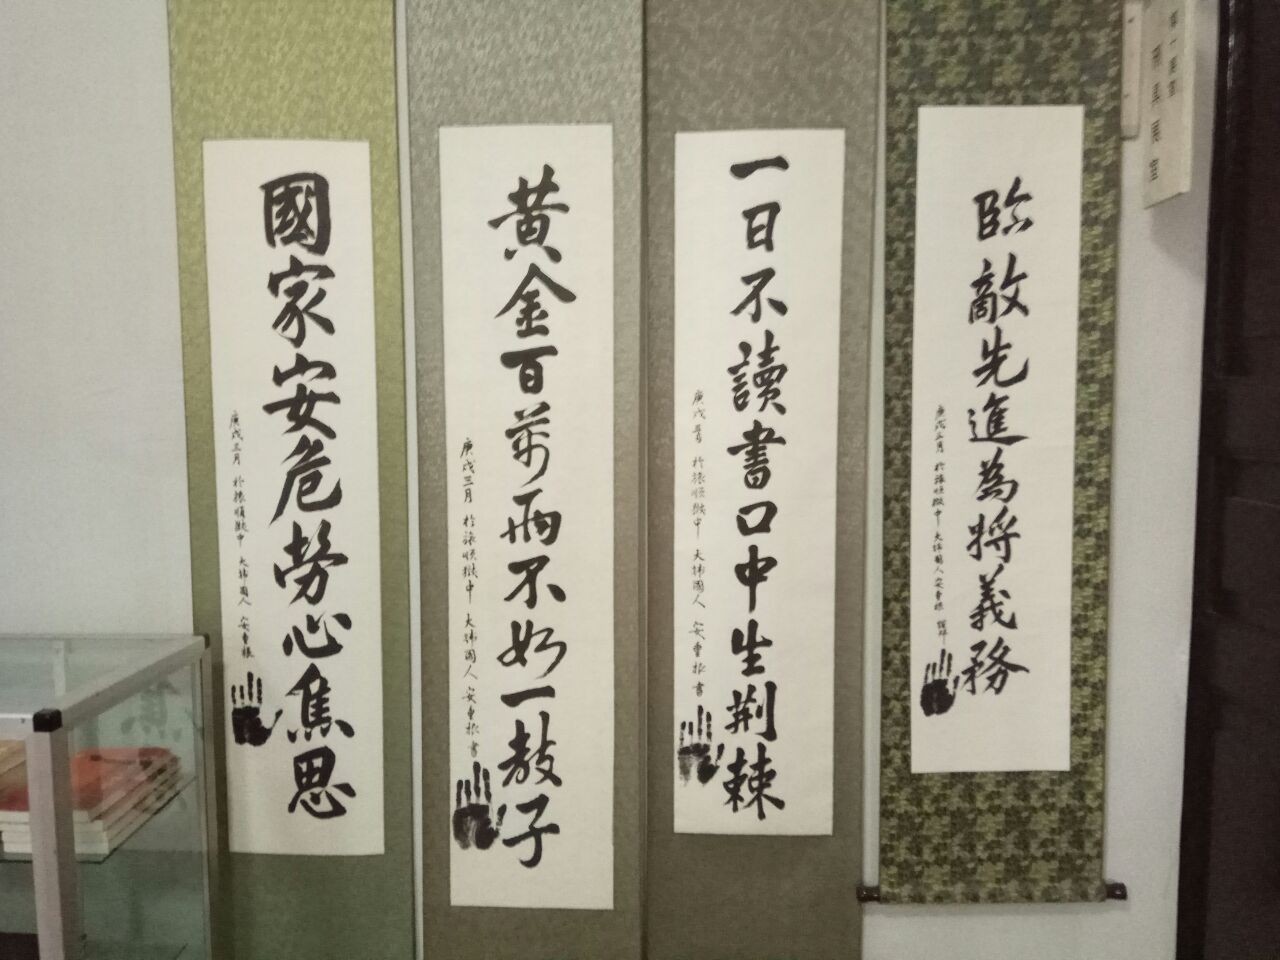 刑具展室
臨敵先進為將義務
庚戌三月 於旅順獄中 大韓國人 安重根 謹拜
一日不讀書口中生荊棘
庚戌三月 於旅順獄中 大韓國人 安重根 書
黄金百萬兩不如一教子
庚戌三月 於旅順獄中 大韓國人 安重根 書
國家安危勞心焦思
庚戌三月 於旅順獄中 大韓國人 安重根